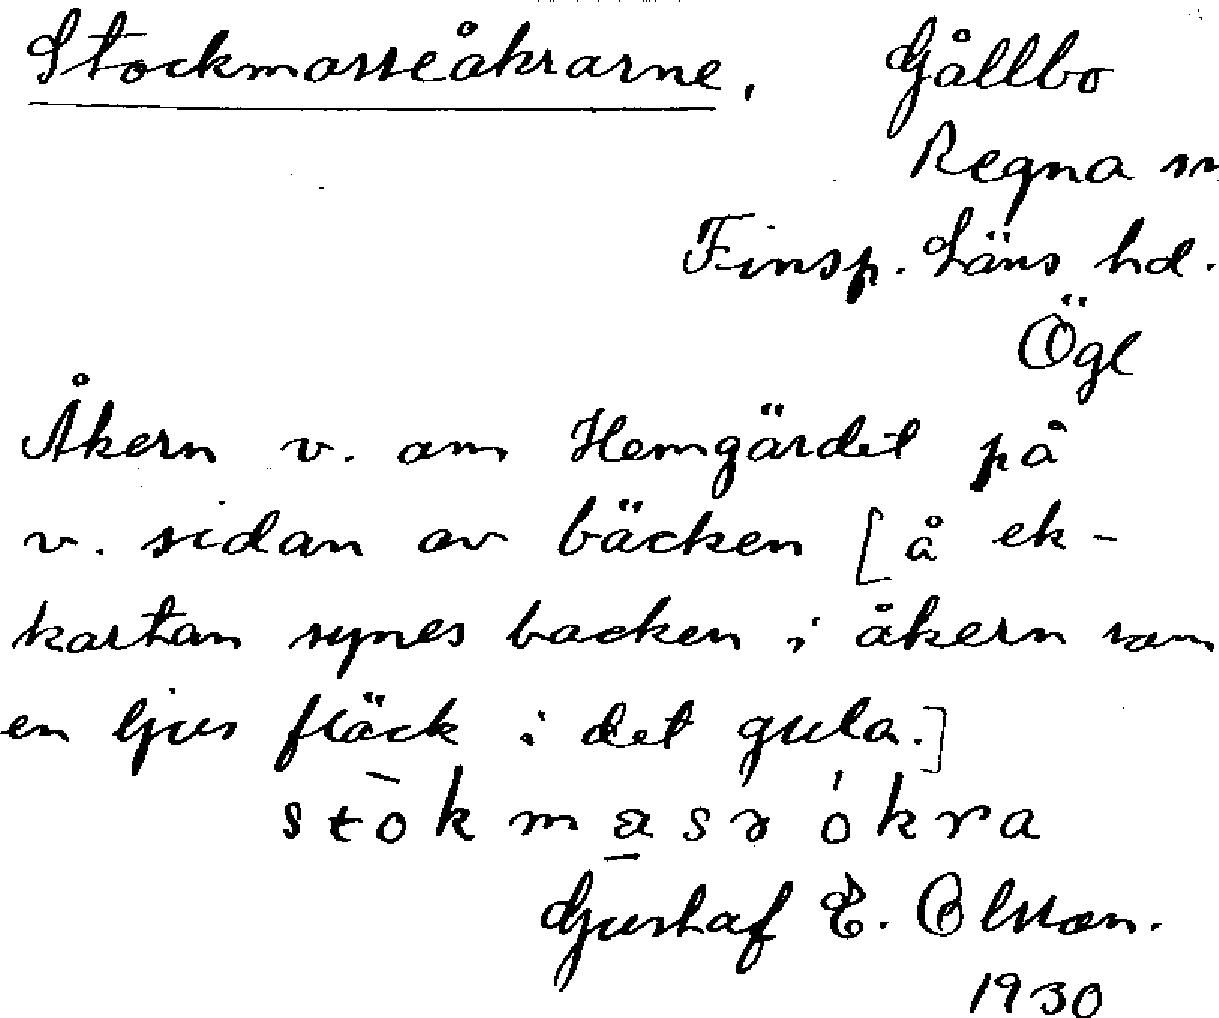 Stockmosseåkrarne. Gållbo
Regna sn
Finsp. läns hd.
Ögl
Åkern v. om Hemgärdet på
v. sidan av bäcken [å ek-
kartan synes backen i åkern som
en ljus fläck i det gula.]
Gustaf E. Olsson.
1930